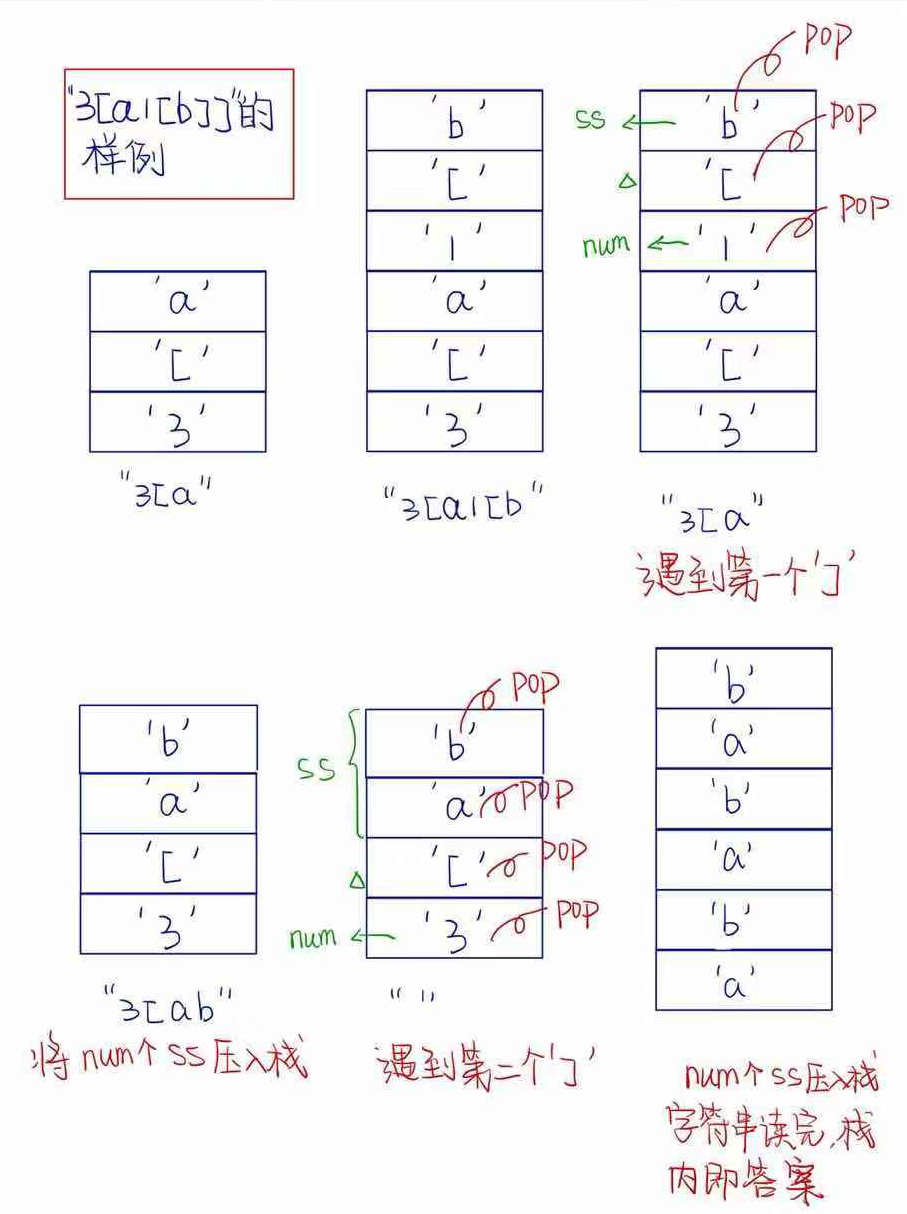 "3[a1[b]]"的
样例
'a'
'['
'3'
"3[a"
'b'
'['
'1'
'a'
'['
'3'
"3[a1[b"
pop
ss ← 'b'
pop
△ '['
pop
num ← '1'
'a'
'['
'3'
"3[a"
遇到第一个']'
'b'
'a'
'['
'3'
"3[ab"
将num个ss压入栈
pop
'b'
ss
'a' pop
△ '[' pop
num ← '3' pop
" "
遇到第二个']'
'b'
'a'
'b'
'a'
'b'
'a'
num个ss压入栈
字符串读完,栈
内即答案